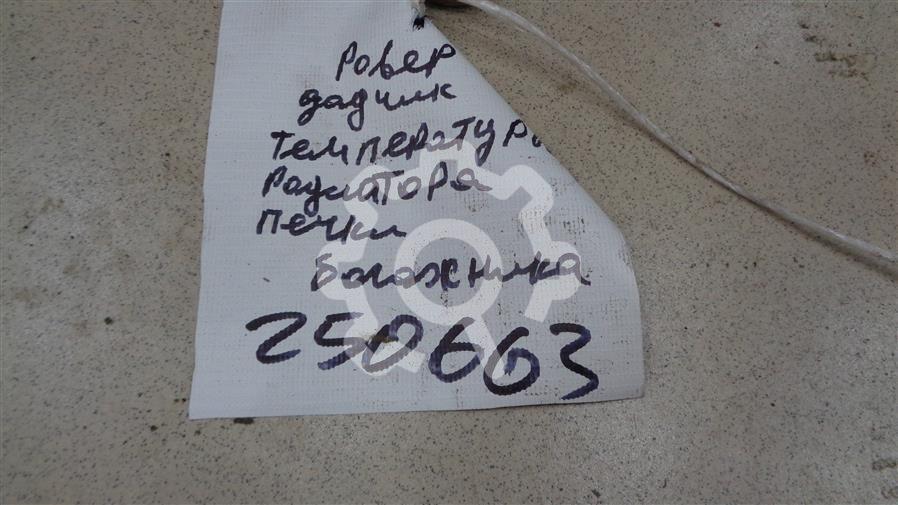 Ровер
дадчик
температуры
радиатора
печки
багажника
250663